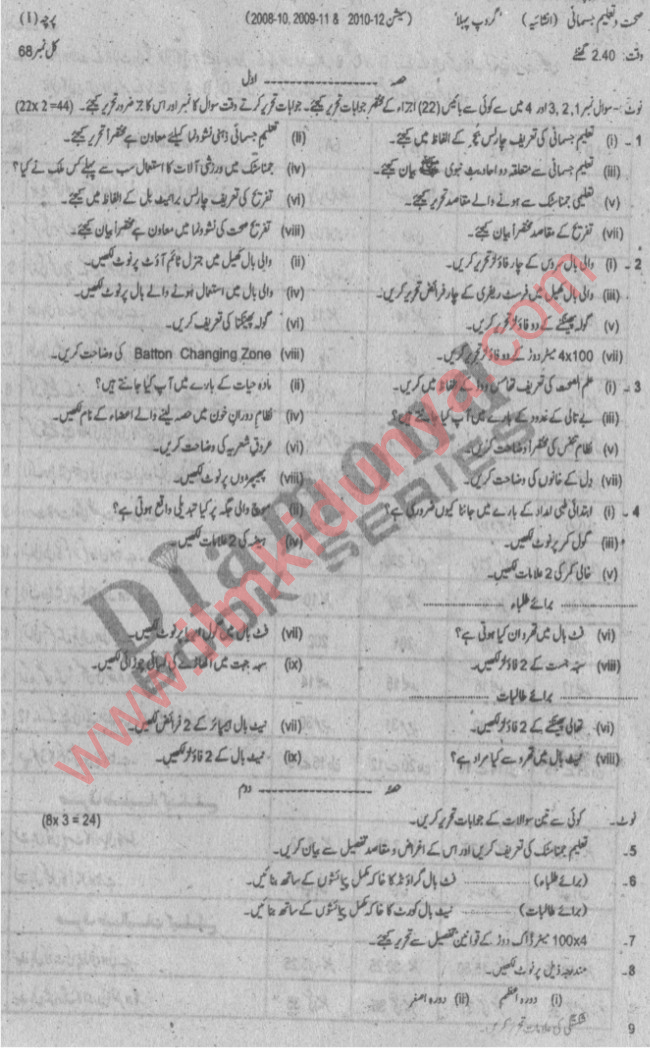 صحت و تعلیم جسمانی (انشائیہ) گروپ پہلا (سیشن 2010-12 & 2009-11 ,2008-10) پرچہ (I)
وقت: 2.40 گھنٹے کل نمبر 68
حصہ اول
نوٹ - سوال نمبر 1, 2, 3 اور 4 میں سے کوئی سے بائیس (22) اجزاء کے مختصر جوابات تحریر کیجئے۔ جوابات تحریر کرتے وقت سوال کا نمبر اور اس کا جز ضرور تحریر کیجئے۔ (22x 2 =44)
1 - (i) تعلیم جسمانی کی تعریف چارلس بیوچر کے الفاظ میں کیجئے۔ (ii) تعلیم جسمانی ذہنی نشوونما کیلئے معاون ہے مختصراً تحریر کیجئے۔
(iii) تعلیم جسمانی سے متعلقہ دو احادیث نبوی ﷺ بیان کیجئے۔ (iv) جمناسٹک میں ورزشی آلات کا استعمال سب سے پہلے کس ملک نے کیا؟
(v) تعلیمی جمناسٹک سے ہونے والے مقاصد تحریر کیجئے۔ (vi) تفریح کی تعریف چارلس برائیٹ بل کے الفاظ میں کیجئے۔
(vii) تفریح کے مقاصد مختصراً بیان کیجئے۔ (viii) تفریح صحت کی نشوونما میں معاون ہے مختصراً بیان کیجئے۔
2 - (i) والی بال سروس کے چار فاؤلز تحریر کریں۔ (ii) والی بال کھیل میں جنرل ٹائم آؤٹ پر نوٹ لکھیں۔
(iii) والی بال کھیل میں فرسٹ ریفری کے چار فرائض تحریر کریں۔ (iv) والی بال میں استعمال ہونے والے بال پر نوٹ لکھیں۔
(v) گولہ پھینکنے کے دو فاؤلز تحریر کریں۔ (vi) گولہ پھینکنا کی تعریف کریں۔
(vii) 4x100 میٹر دوڑ کے دو فاؤلز تحریر کریں۔ (viii) Batton Changing Zone کی وضاحت کریں۔
3 - (i) علم الصحت کی تعریف تھامس ووڈ کے الفاظ میں کریں۔ (ii) مادہ حیات کے بارے میں آپ کیا جانتے ہیں؟
(iii) بے نالی کے غدود کے بارے میں آپ کیا جانتے ہیں؟ (iv) نظام دوران خون میں حصہ لینے والے اعضاء کے نام لکھیں۔
(v) نظام تنفس کی مختصراً وضاحت کریں۔ (vi) عروق شعریہ کی وضاحت کریں۔
(vii) دل کے خانوں کی وضاحت کریں۔ (viii) پھیپھڑوں پر نوٹ لکھیں۔
4 - (i) ابتدائی طبی امداد کے بارے میں جاننا کیوں ضروری ہے؟ (ii) موچ والی جگہ پر کیا تبدیلی واقع ہوتی ہے؟
(iii) گول کمر پر نوٹ لکھیں۔ (iv) ہیضہ کی 2 علامات لکھیں۔
(v) خالی کمر کی 2 علامات لکھیں۔
برائے طلباء
(vi) فٹ بال میں تھرو ان کیا ہوتی ہے؟ (vii) فٹ بال میں گول ایریا پر نوٹ لکھیں۔
(viii) سہ جست کے 2 فاؤلز لکھیں۔ (ix) سہ جست میں اکھاڑے کی لمبائی چوڑائی لکھیں۔
برائے طالبات
(vi) تھالی پھینکنے کے 2 فاؤلز لکھیں۔ (vii) نیٹ بال امپائر کے 2 فرائض لکھیں۔
(viii) نیٹ بال میں تھرو سے کیا مراد ہے؟ (ix) نیٹ بال کے 2 فاؤلز لکھیں۔
حصہ دوم
نوٹ - کوئی سے تین سوالات کے جوابات تحریر کریں۔ (8x 3 = 24)
5 - تعلیم جمناسٹک کی تعریف کریں اور اس کے اغراض و مقاصد تفصیل سے بیان کریں۔
6 - (برائے طلباء) فٹ بال گراؤنڈ کا خاکہ مکمل پیمائشوں کے ساتھ بنائیں۔
(برائے طالبات) نیٹ بال کورٹ کا خاکہ مکمل پیمائشوں کے ساتھ بنائیں۔
7 - 100x4 میٹر ڈاک دوڑ کے قوانین تفصیل سے تحریر کیجئے۔
8 - مندرجہ ذیل پر نوٹ لکھیں۔
(i) دورہ اعظم (ii) دورہ اصغر
9 کی علامات تحریر کریں۔
Diamond
BOOK SERIES
www.ilmkidunya.com